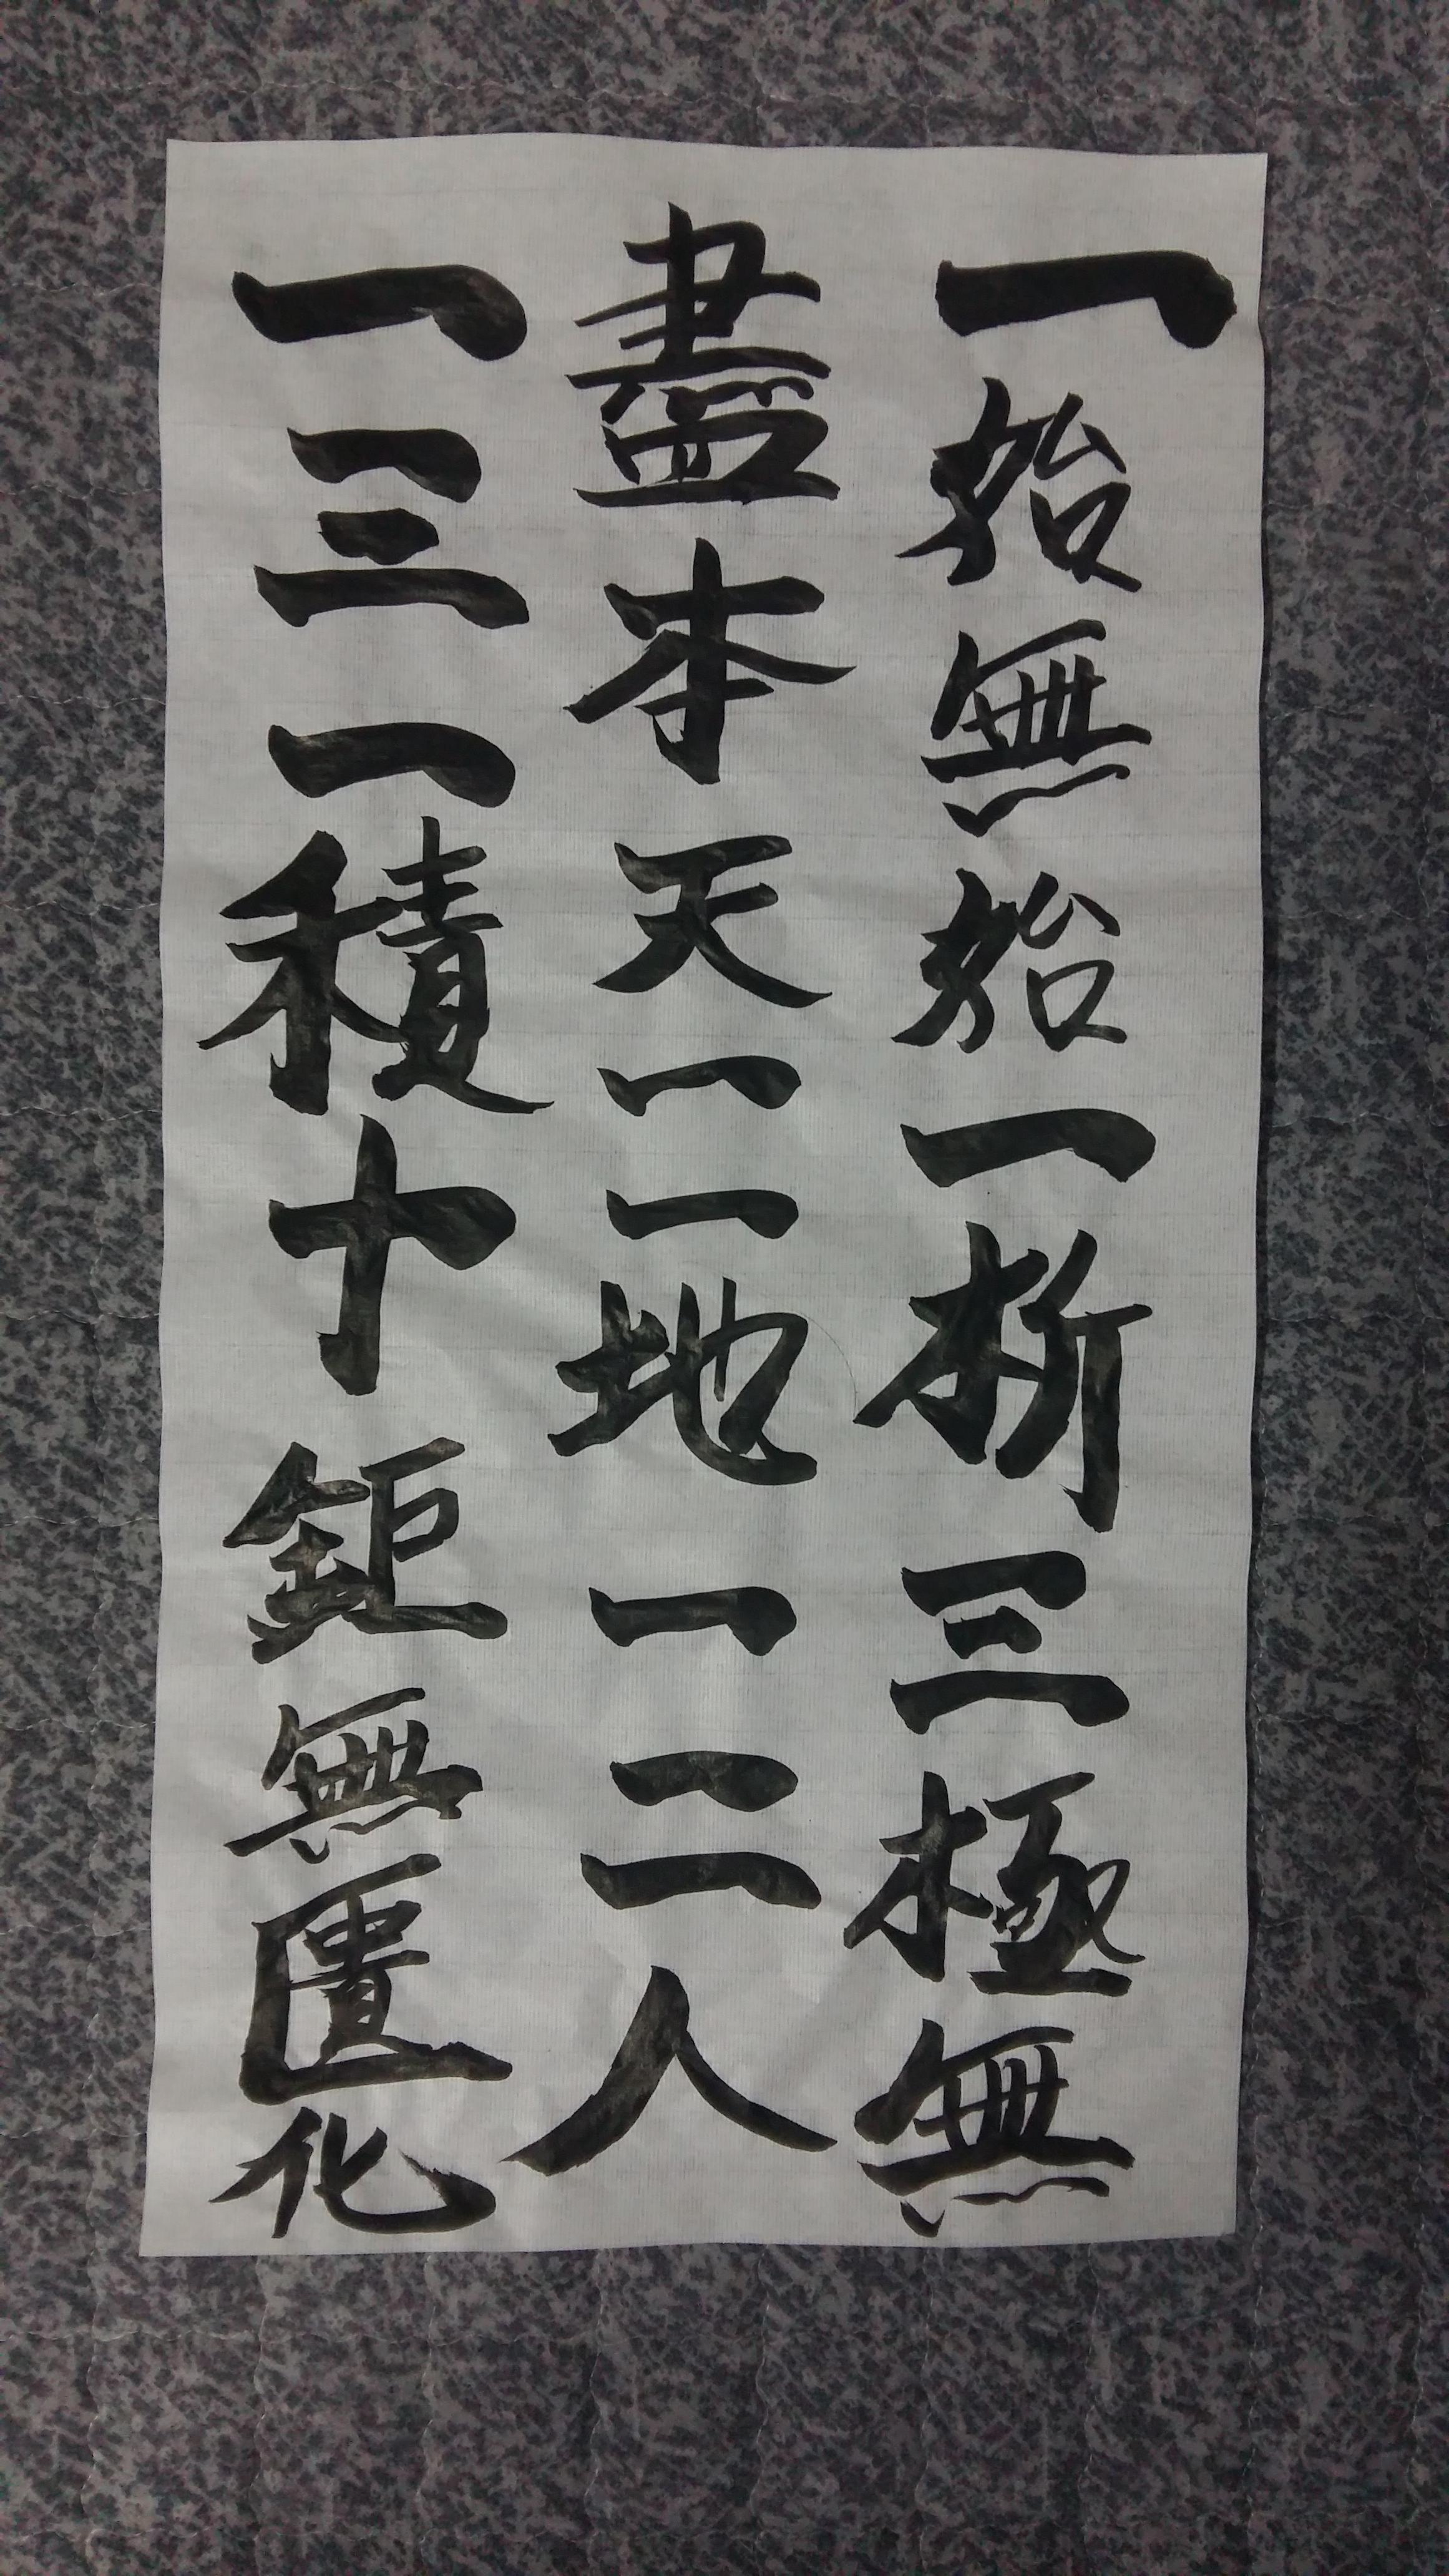 一始無始一析三極無
盡本天一一地一二人
一三一積十鉅無匱化